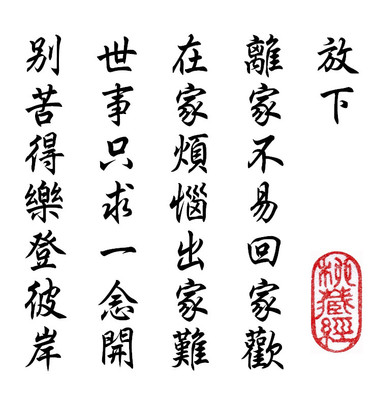 放下
離家不易回家歡
在家煩惱出家難
世事只求一念開
别苦得樂登彼岸
秘藏經